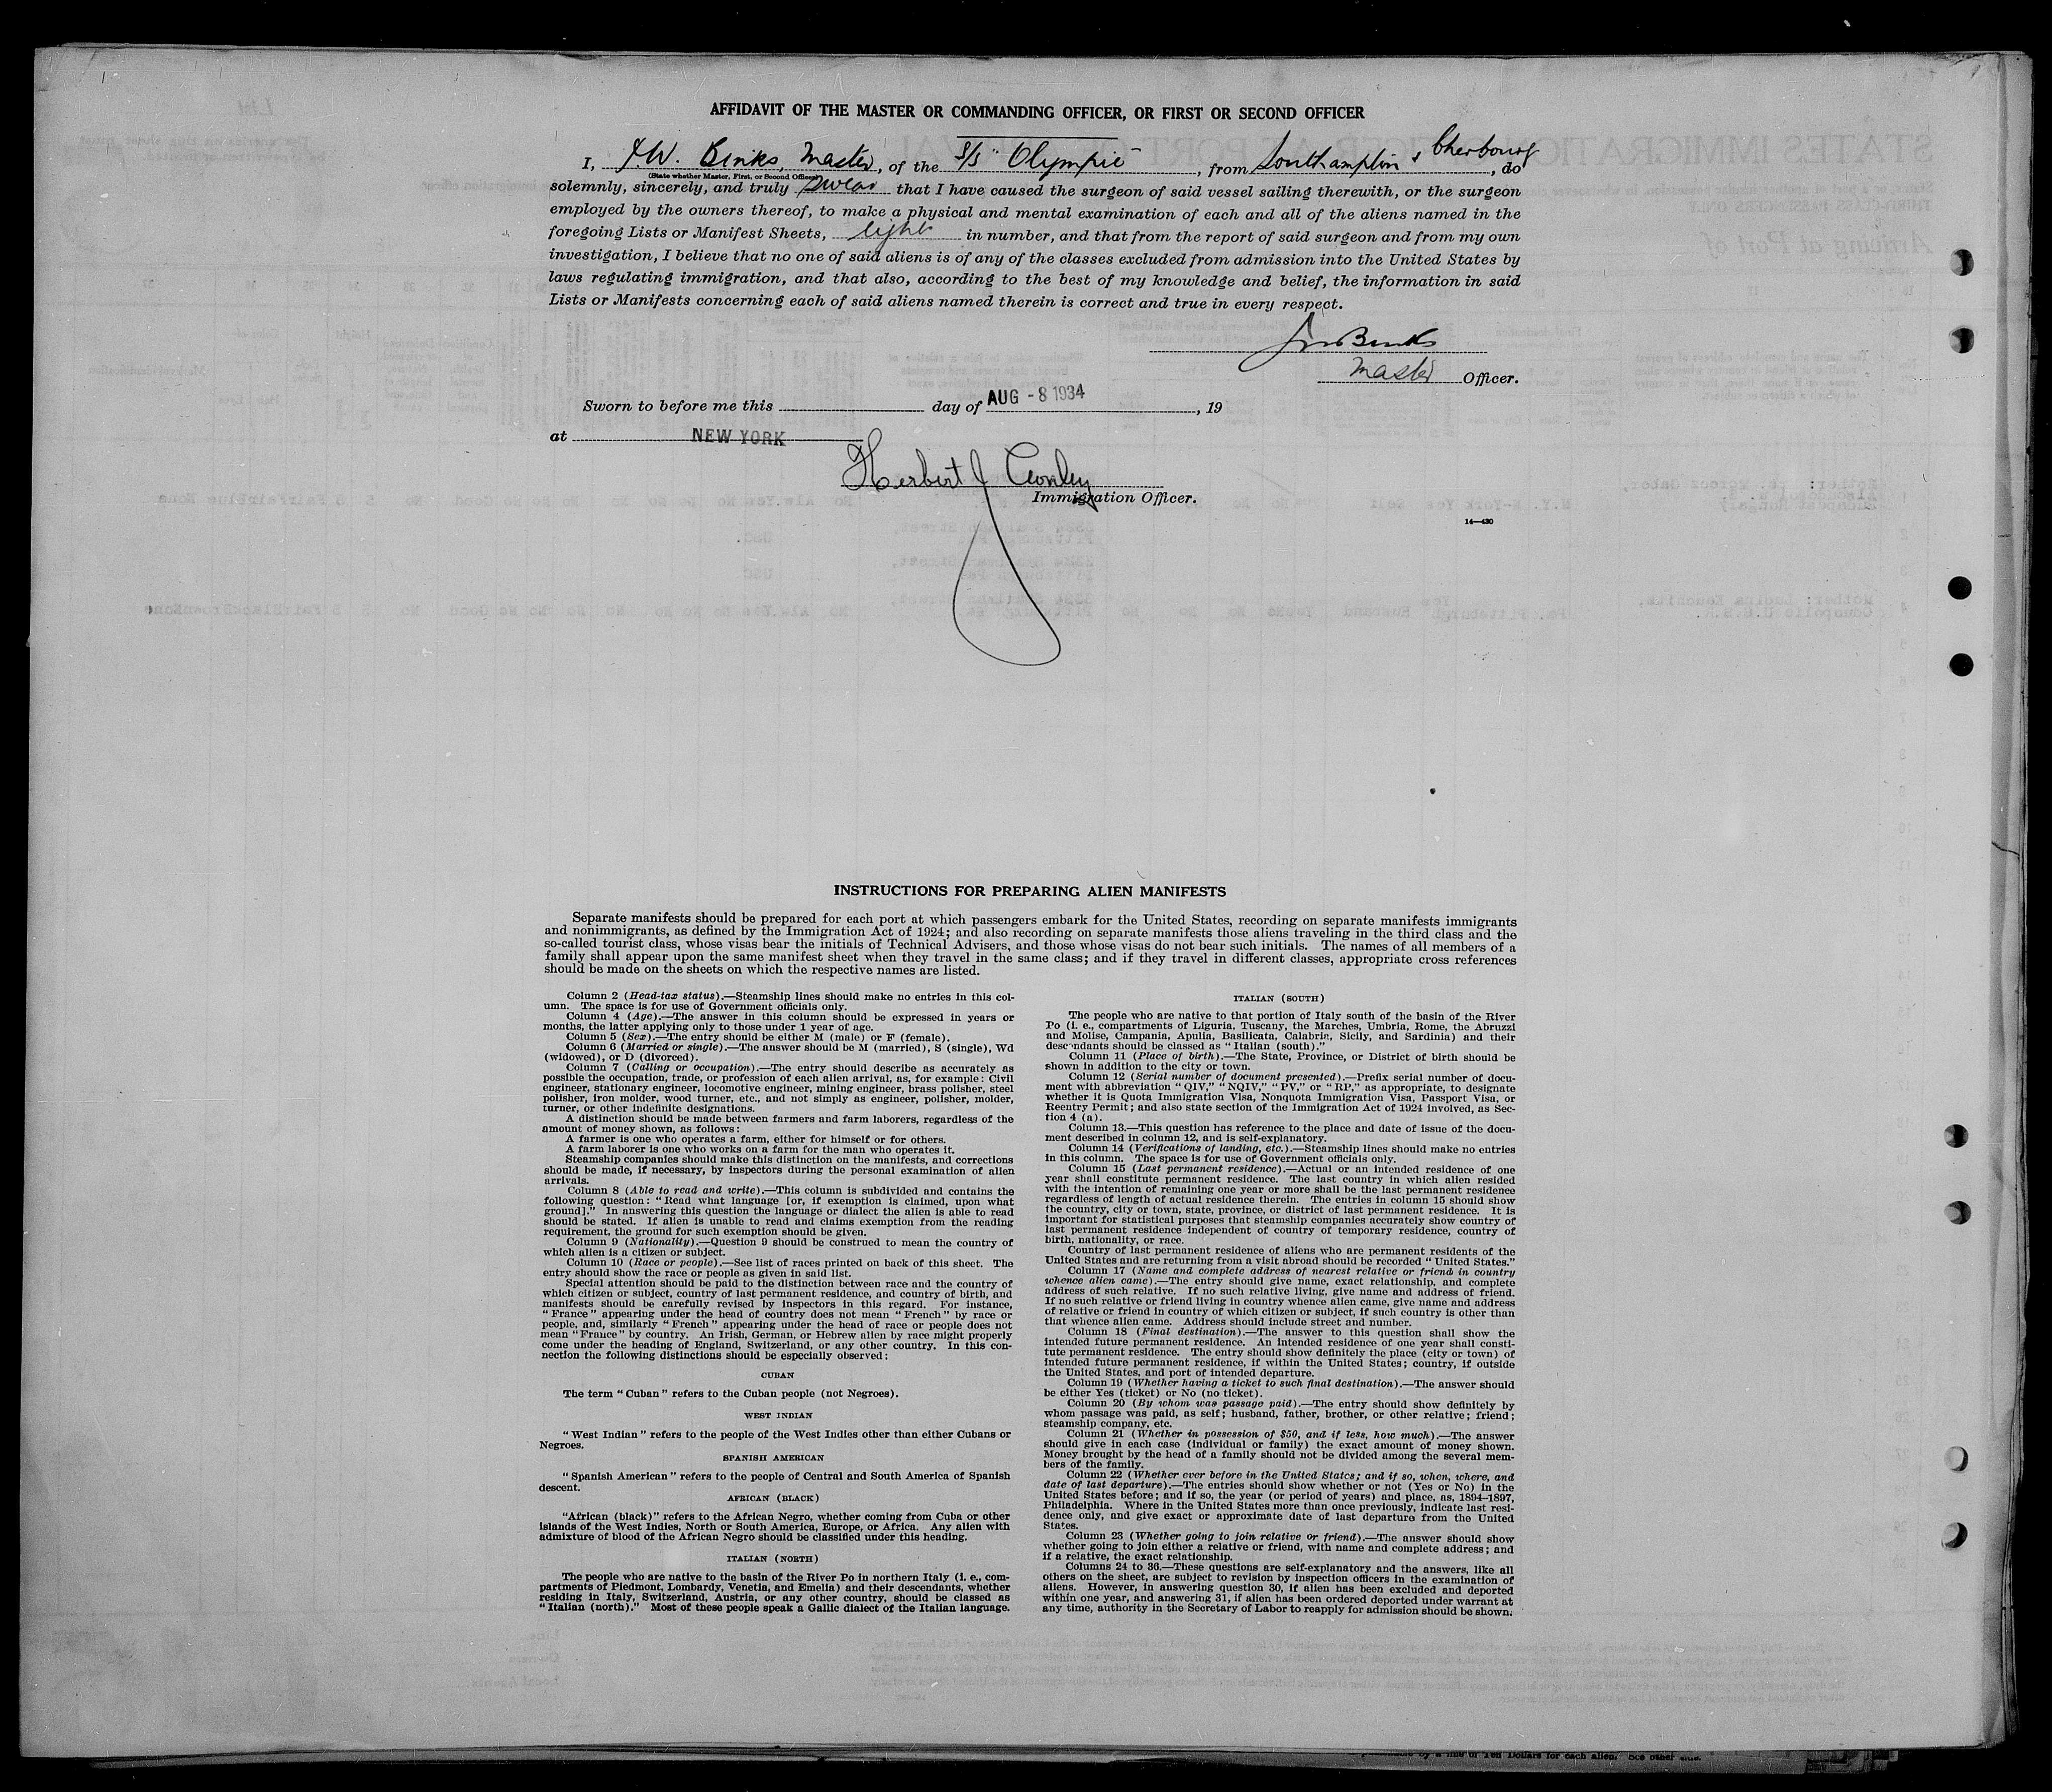 AFFIDAVIT OF THE MASTER OR COMMANDING OFFICER, OR FIRST OR SECOND OFFICER
I, J.W. Binks, Master, of the S/S "Olympic", from Southampton & Cherbourg, do
(State whether Master, First, or Second Officer)
solemnly, sincerely, and truly swear that I have caused the surgeon of said vessel sailing therewith, or the surgeon
employed by the owners thereof, to make a physical and mental examination of each and all of the aliens named in the
foregoing Lists or Manifest Sheets, eight in number, and that from the report of said surgeon and from my own
investigation, I believe that no one of said aliens is of any of the classes excluded from admission into the United States by
laws regulating immigration, and that also, according to the best of my knowledge and belief, the information in said
Lists or Manifests concerning each of said aliens named therein is correct and true in every respect.
JW Binks
Master Officer.
Sworn to before me this day of AUG - 8 1934, 19
at NEW YORK
Herbert J
Immigration Officer.
14—430
INSTRUCTIONS FOR PREPARING ALIEN MANIFESTS
Separate manifests should be prepared for each port at which passengers embark for the United States, recording on separate manifests immigrants
and nonimmigrants, as defined by the Immigration Act of 1924; and also recording on separate manifests those aliens traveling in the third class and the
so-called tourist class, whose visas bear the initials of Technical Advisers, and those whose visas do not bear such initials. The names of all members of a
family shall appear upon the same manifest sheet when they travel in the same class; and if they travel in different classes, appropriate cross references
should be made on the sheets on which the respective names are listed.
Column 2 (Head-tax status).—Steamship lines should make no entries in this col-
umn. The space is for use of Government officials only.
Column 4 (Age).—The answer in this column should be expressed in years or
months, the latter applying only to those under 1 year of age.
Column 5 (Sex).—The entry should be either M (male) or F (female).
Column 6 (Married or single).—The answer should be M (married), S (single), Wd
(widowed), or D (divorced).
Column 7 (Calling or occupation).—The entry should describe as accurately as
possible the occupation, trade, or profession of each alien arrival, as, for example: Civil
engineer, stationary engineer, locomotive engineer, mining engineer, brass polisher, steel
polisher, iron molder, wood turner, etc., and not simply as engineer, polisher, molder,
turner, or other indefinite designations.
A distinction should be made between farmers and farm laborers, regardless of the
amount of money shown, as follows:
A farmer is one who operates a farm, either for himself or for others.
A farm laborer is one who works on a farm for the man who operates it.
Steamship companies should make this distinction on the manifests, and corrections
should be made, if necessary, by inspectors during the personal examination of alien
arrivals.
Column 8 (Able to read and write).—This column is subdivided and contains the
following question: "Read what language [or, if exemption is claimed, upon what
ground]." In answering this question the language or dialect the alien is able to read
should be stated. If alien is unable to read and claims exemption from the reading
requirement, the ground for such exemption should be given.
Column 9 (Nationality).—Question 9 should be construed to mean the country of
which alien is a citizen or subject.
Column 10 (Race or people).—See list of races printed on back of this sheet. The
entry should show the race or people as given in said list.
Special attention should be paid to the distinction between race and the country of
which citizen or subject, country of last permanent residence, and country of birth, and
manifests should be carefully revised by inspectors in this regard. For instance,
"France" appearing under the head of country does not mean "French" by race or
people, and, similarly "French" appearing under the head of race or people does not
mean "France" by country. An Irish, German, or Hebrew alien by race might properly
come under the heading of England, Switzerland, or any other country. In this con-
nection the following distinctions should be especially observed:
CUBAN
The term "Cuban" refers to the Cuban people (not Negroes).
WEST INDIAN
"West Indian" refers to the people of the West Indies other than either Cubans or
Negroes.
SPANISH AMERICAN
"Spanish American" refers to the people of Central and South America of Spanish
descent.
AFRICAN (BLACK)
"African (black)" refers to the African Negro, whether coming from Cuba or other
islands of the West Indies, North or South America, Europe, or Africa. Any alien with
admixture of blood of the African Negro should be classified under this heading.
ITALIAN (NORTH)
The people who are native to the basin of the River Po in northern Italy (i. e., com-
partments of Piedmont, Lombardy, Venetia, and Emelia) and their descendants, whether
residing in Italy, Switzerland, Austria, or any other country, should be classed as
"Italian (north)." Most of these people speak a Gallic dialect of the Italian language.
ITALIAN (SOUTH)
The people who are native to that portion of Italy south of the basin of the River
Po (i. e., compartments of Liguria, Tuscany, the Marches, Umbria, Rome, the Abruzzi
and Molise, Campania, Apulia, Basilicata, Calabria, Sicily, and Sardinia) and their
descendants should be classed as "Italian (south)."
Column 11 (Place of birth).—The State, Province, or District of birth should be
shown in addition to the city or town.
Column 12 (Serial number of document presented).—Prefix serial number of docu-
ment with abbreviation "QIV," "NQIV," "PV," or "RP," as appropriate, to designate
whether it is Quota Immigration Visa, Nonquota Immigration Visa, Passport Visa, or
Reentry Permit; and also state section of the Immigration Act of 1924 involved, as Sec-
tion 4 (a).
Column 13.—This question has reference to the place and date of issue of the docu-
ment described in column 12, and is self-explanatory.
Column 14 (Verifications of landing, etc.).—Steamship lines should make no entries
in this column. The space is for use of Government officials only.
Column 15 (Last permanent residence).—Actual or an intended residence of one
year shall constitute permanent residence. The last country in which alien resided
with the intention of remaining one year or more shall be the last permanent residence
regardless of length of actual residence therein. The entries in column 15 should show
the country, city or town, state, province, or district of last permanent residence. It is
important for statistical purposes that steamship companies accurately show country of
last permanent residence independent of country of temporary residence, country of
birth, nationality, or race.
Country of last permanent residence of aliens who are permanent residents of the
United States and are returning from a visit abroad should be recorded "United States."
Column 17 (Name and complete address of nearest relative or friend in country
whence alien came).—The entry should give name, exact relationship, and complete
address of such relative. If no such relative living, give name and address of friend.
If no such relative or friend living in country whence alien came, give name and address
of relative or friend in country of which citizen or subject, if such country is other than
that whence alien came. Address should include street and number.
Column 18 (Final destination).—The answer to this question shall show the
intended future permanent residence. An intended residence of one year shall consti-
tute permanent residence. The entry should show definitely the place (city or town) of
intended future permanent residence, if within the United States; country, if outside
the United States, and port of intended departure.
Column 19 (Whether having a ticket to such final destination).—The answer should
be either Yes (ticket) or No (no ticket).
Column 20 (By whom was passage paid).—The entry should show definitely by
whom passage was paid, as self; husband, father, brother, or other relative; friend;
steamship company, etc.
Column 21 (Whether in possession of $50, and if less, how much).—The answer
should give in each case (individual or family) the exact amount of money shown.
Money brought by the head of a family should not be divided among the several mem-
bers of the family.
Column 22 (Whether ever before in the United States; and if so, when, where, and
date of last departure).—The entries should show whether or not (Yes or No) in the
United States before; and if so, the year (or period of years) and place, as, 1894–1897,
Philadelphia. Where in the United States more than once previously, indicate last resi-
dence only, and give exact or approximate date of last departure from the United
States.
Column 23 (Whether going to join relative or friend).—The answer should show
whether going to join either a relative or friend, with name and complete address; and
if a relative, the exact relationship.
Columns 24 to 36.—These questions are self-explanatory and the answers, like all
others on the sheet, are subject to revision by inspection officers in the examination of
aliens. However, in answering question 30, if alien has been excluded and deported
within one year, and answering 31, if alien has been ordered deported under warrant at
any time, authority in the Secretary of Labor to reapply for admission should be shown.